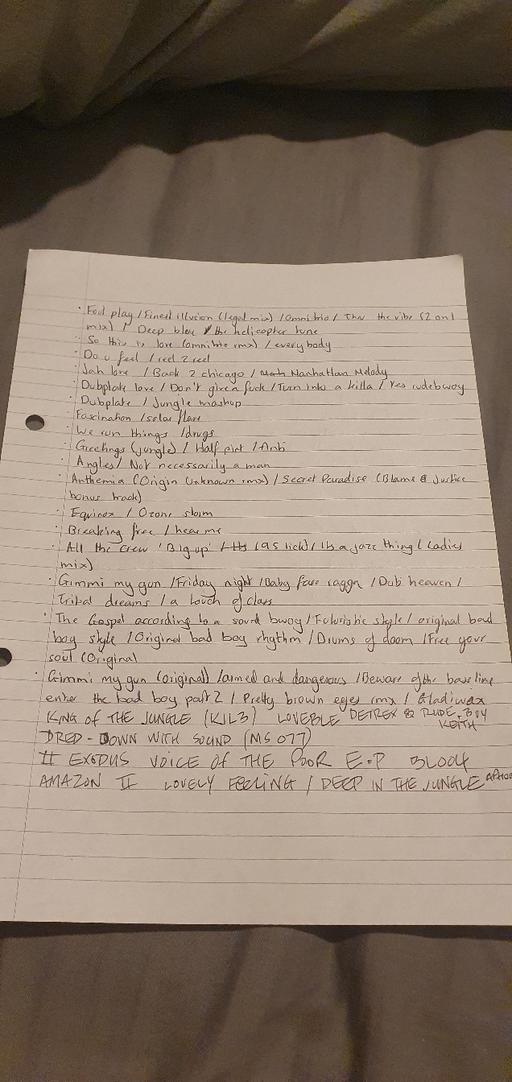 · Foul play / Finest illusion (legal mix) / Omni trio / Thru the vibe (2 on 1
mix) / Deep blue / the helicopter tune
· So this is love (omni trio rmx) / everybody
· Do u feel / reel 2 reel
· Jah love / Back 2 chicago / Manhattan Melody
· Dubplate love / Don't give a fuck / Turn into a killa / Yes rudebwoy
· Dubplate / Jungle mashup
· Fascination / solar flare
· We run things / drugs
· Greetings (jungle) / Half pint /
· Angles / Not necessarily a man
· Anthemia (Origin Unknown rmx) / Secret Paradise (Blame & Justice
bonus track)
· Equinox / Ozone storm
· Breaking free / hear me
· All the crew 'Big up' / (95 lick) / Its a jazz thing (Ladies
mix)
· Gimmi my gun / Friday night / Baby face ragga / Dub heaven /
Tribal dreams / a touch of class
· The Gospel according to a sound bwoy / Futuristic style / original bad
boy style / Original bad boy rhythm / Drums of doom / Free your
soul (Original
· Gimmi my gun (original) / armed and dangerous / Beware of the bass line
enter the bad boy part 2 / Pretty brown eyes rmx / Gladiwax
KING OF THE JUNGLE (KIL3) LOVEABLE DETREX & RUDE BOY
KEITH
DRED - DOWN WITH SOUND (MS 077)
II EXODUS VOICE OF THE POOR E.P BLOO4
AMAZON II LOVELY FEELING / DEEP IN THE JUNGLE